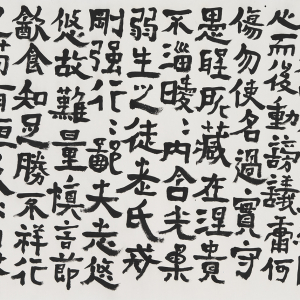 心而後動謗議庸何
傷勿使名過實守
愚聖所藏在涅貴
不淄曖〻内含光柔
弱生之徒老氏戒
剛強行〻鄙夫志悠
悠故難量慎言節
飲食知足勝不祥行
之苟有恒久